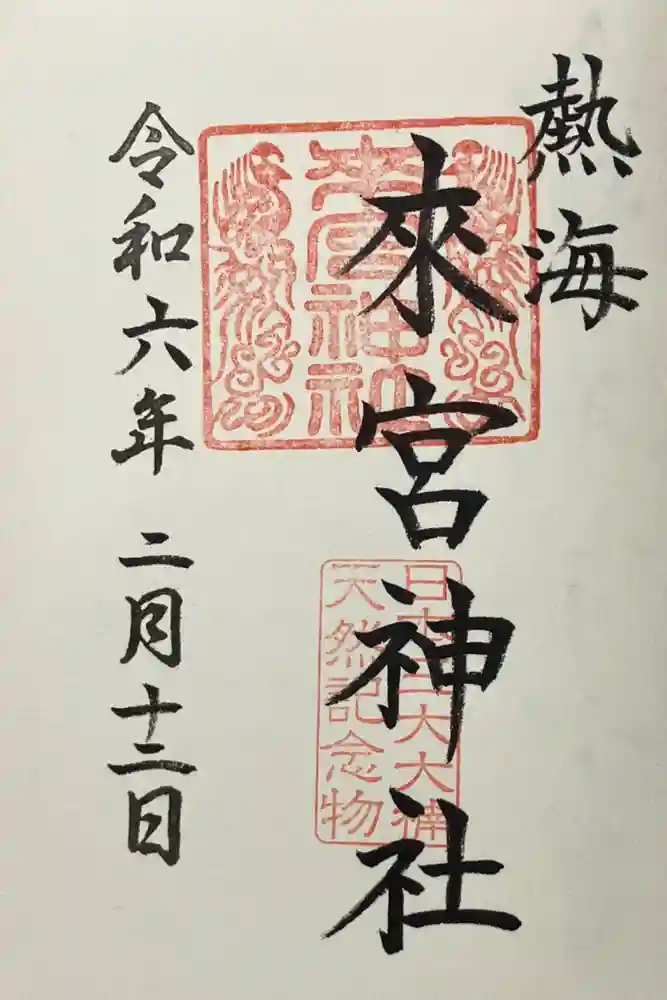 熱海
來宮神社
來宮神社
日本三大大楠
天然記念物
令和六年 二月十二日